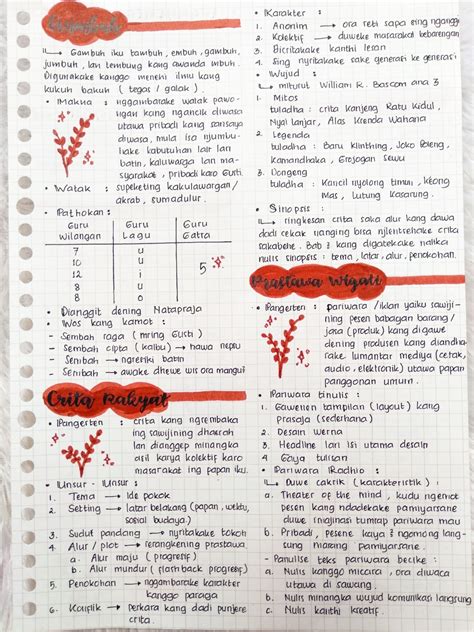 Gambuh
↳ Gambuh iku tambuh, embuh, gambuh,
jumbuh, lan tembung kang awanda mbuh.
Digunakake kanggo menehi ilmu kang
kukuh bakuh ( tegas / galak ).
• Makna : nggambarake watak pawo-
ngan kang ngancik diwasa
utawa pribadi kang sansaya
diwasa, mula isa njumbu-
hake kabutuhan lair lan
batin, kaluwarga lan ma-
syarakat, pribadi karo Gusti.
• Watak : supeketing kakulawargan/
akrab, sumadulur.
• Pathokan :
Guru Wilangan | Guru Lagu | Guru Gatra
7 | u | 5
10 | u
12 | i
8 | u
8 | o
• Dianggit dening Natapraja
• Wos kang kamot :
- Sembah raga ( mring Gusti )
- Sembah cipta ( kalbu ) → hawa nepsu
- Sembah → ngreriki batin
- Sembah → awake dhewe wis ora mangui
Crita Rakyat
• Pangerten : crita kang ngrembaka
ing sawijining dhaerah
lan dianggep minangka
asil karya kolektif karo
masarakat ing papan iku.
• Unsur - Unsur :
1. Tema → Ide pokok
2. Setting → latar belakang (papan, wektu,
sosial budaya.)
3. Sudut pandang → nyritakake tokoh
4. Alur / plot → rerangkening prastawa
a. Alur maju ( progresif )
b. Alur mundur ( flashback progresif )
5. Penokohan → nggambarake karakter
kanggo paraga
6. Konflik → perkara kang dadi punjere
crita.
• Karakter :
1. Anonim → ora reti sapa sing nganggit
2. Kolektif → duweke masarakat bebarengan
3. Dicritakake kanthi lesan
4. Sing nyritakake saka generasi ke generasi
• Wujud :
↳ miturut William R. Bascom ana 3
1. Mitos
tuladha : crita Kanjeng Ratu Kidul,
Nyai Lanjar, Alas Krenda Wahana
2. Legenda
tuladha : Baru Klinthing, Joko Beleng,
Kamandhaka, Grojogan Sewu
3. Dongeng
tuladha : Kancil nyolong timun, Keong
Mas, Lutung Kasarung.
• Sinopsis :
↳ ringkesan crita saka alur kang dawa
dadi cekak nanging bisa njlentrehake crita
sakabehe. Bab 2 kang digatekake nalika
nulis sinopsis : tema, latar, alur, penokohan.
Prastawa Wigati
• Pangerten : pariwara / iklan yaiku sawiji-
ning pesen babagan barang /
jasa (produk) kang digawe
dening produsen kang diandha-
rake lumantar medya (cetak,
audio, elektronik) utawa papan
panggonan umum.
• Pariwara tinulis :
1. Gawenen tampilan (layout) kang
prasaja (sederhana)
2. Desain werna
3. Headline lari isi utama desain
4. Gaya tulisan
• Pariwara Radhio :
↳ Duwe cakrik (karakteristik) :
a. Theater of the mind, kudu ngemot
pesen kang ndadekake pamiyarsane
duwe imajinasi tumrap pariwara mau
b. Pribadi, pesene kaya 2 ngomong lang-
sung marang pamiyarsane.
- Panulise teks pariwara becike :
a. Nulis kanggo micara, ora diwaca
utawa di sawang.
b. Nulis minangka wujud komunikasi langsung
c. Nulis kanthi kreatif.